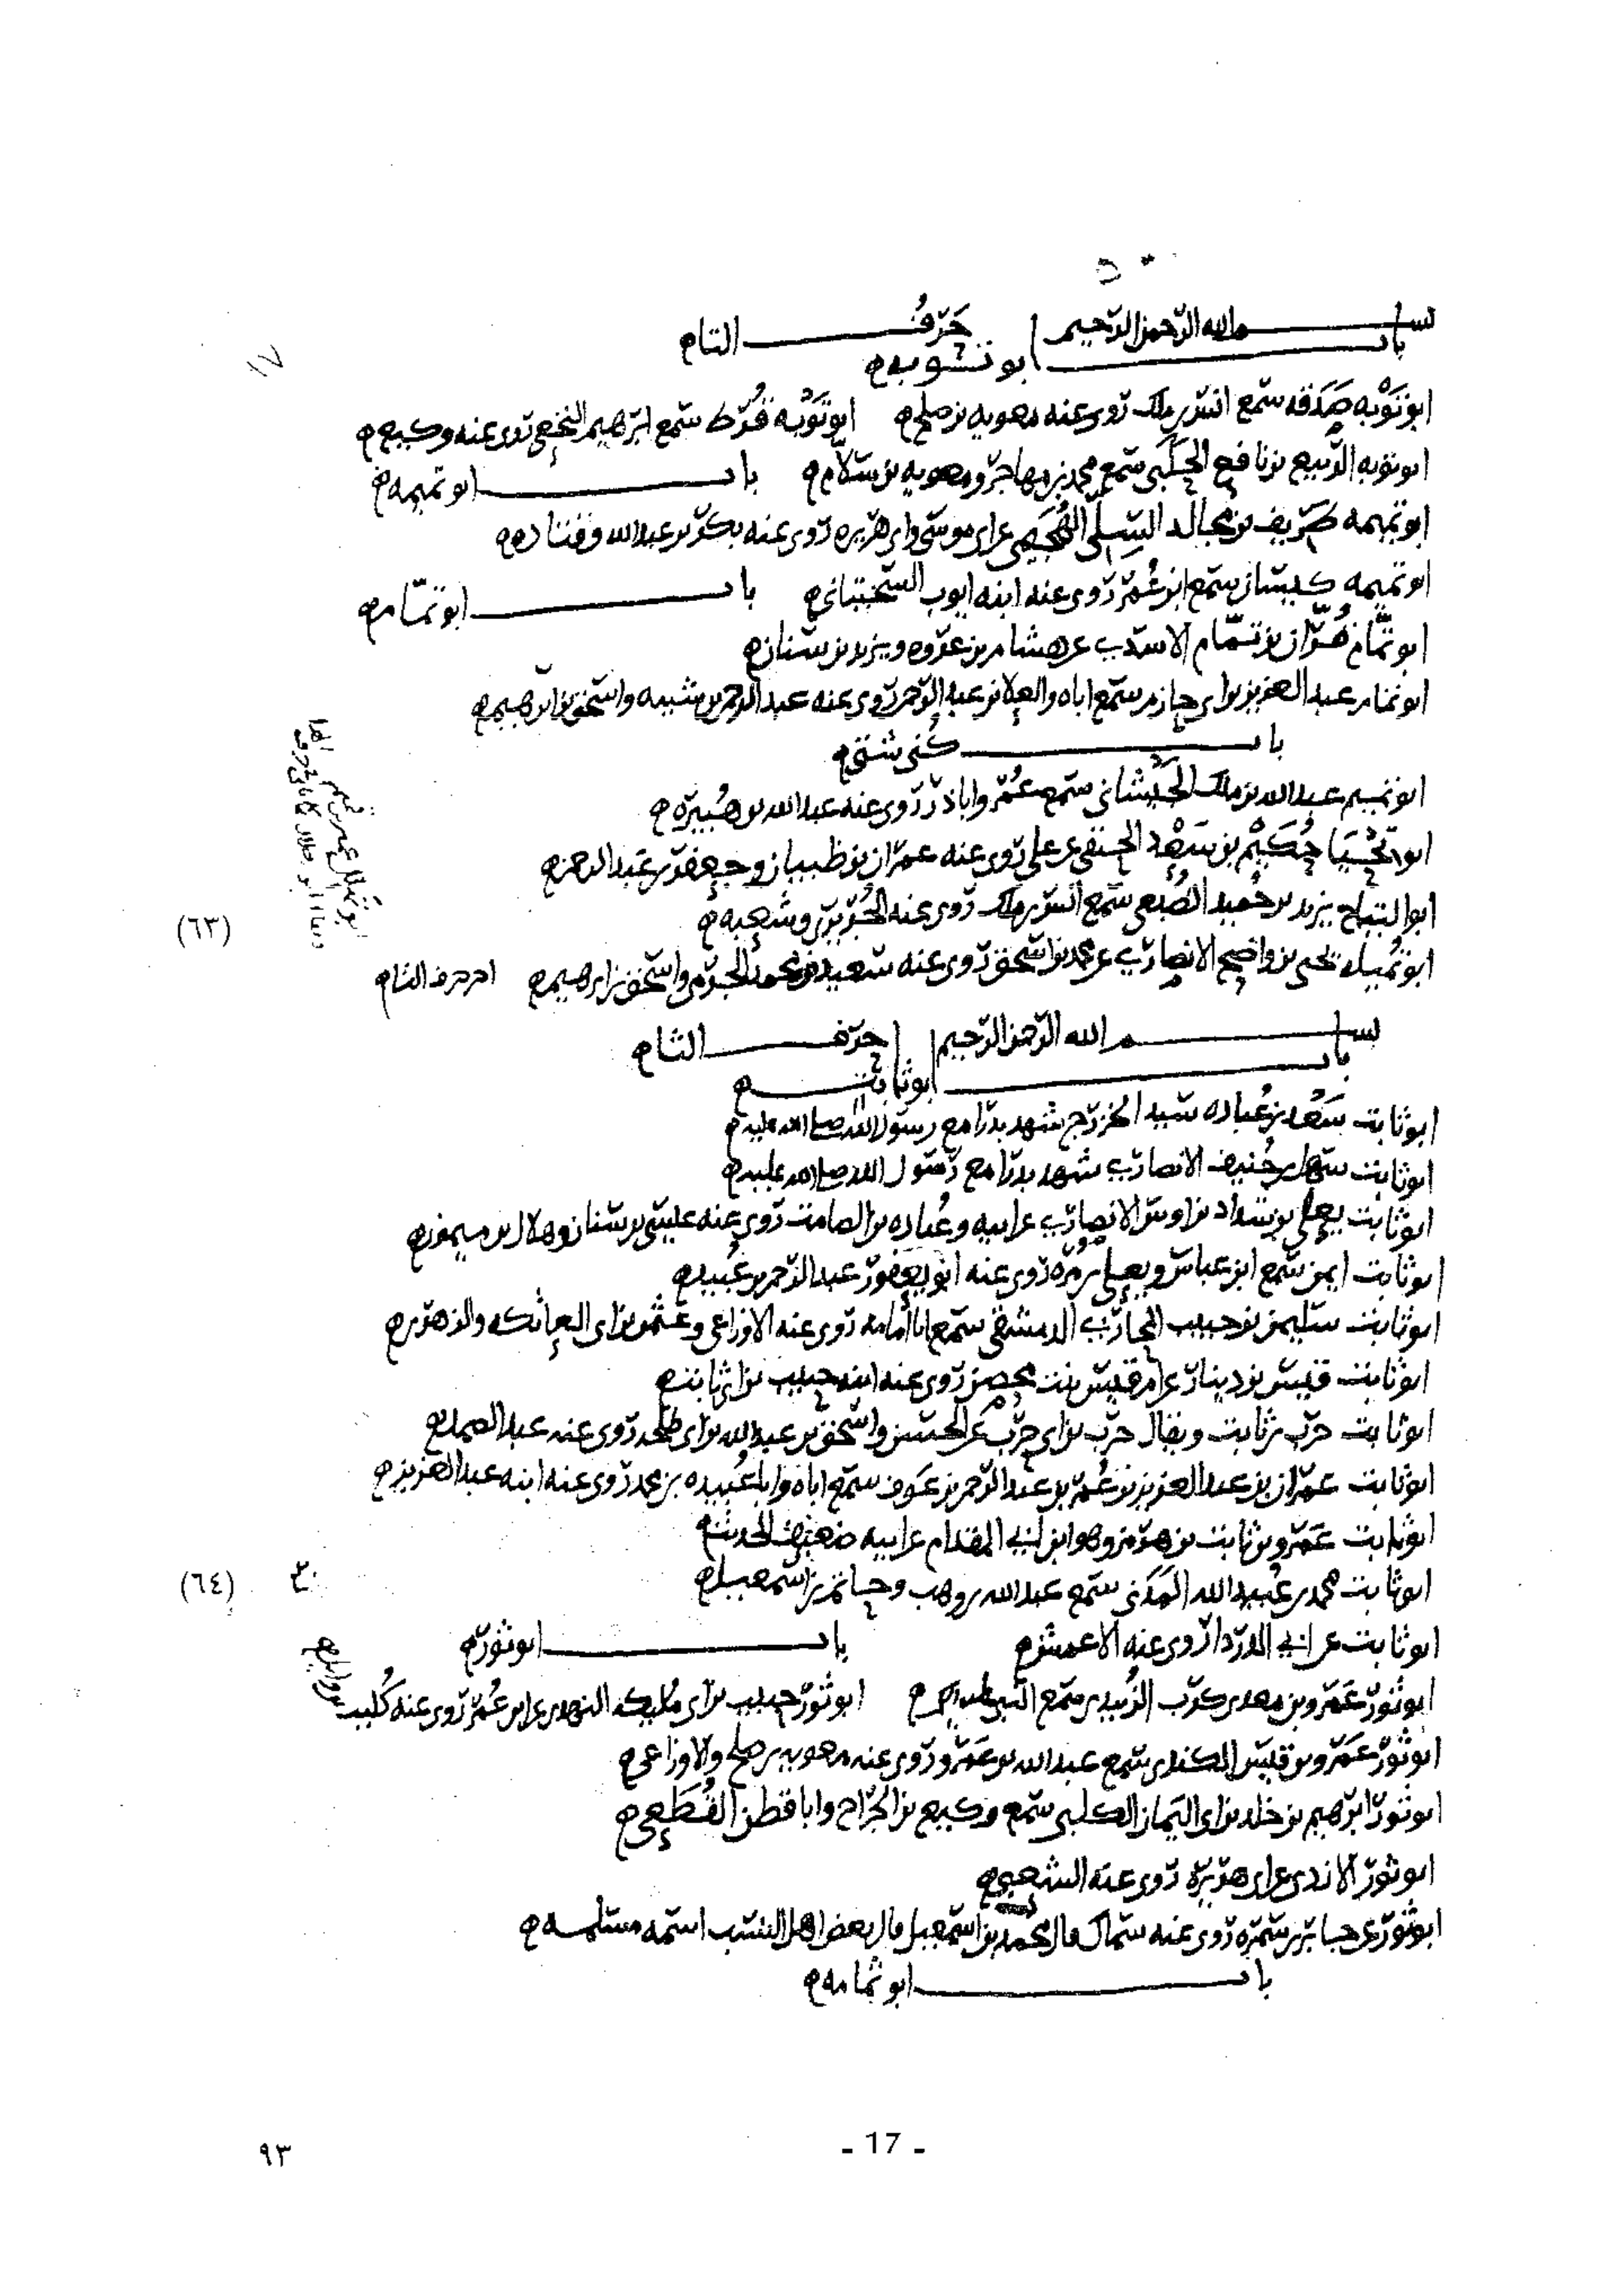 بسم الله الرحمن الرحيم حرف التاء
باب ابو توبه
ابو توبه صدقه سمع انس بن ملك روى عنه معويه بن صلح ابو توبه قرط سمع ابرهيم النخعي روى عنه وكيع
ابو توبه الربيع بن نافع الحلبي سمع محمد بن مهاجر ومعويه بن سلام باب ابو تميمه
ابو تميمه طريف بن مجالد السلي الهجيمي عن ابي موسى وابي هريره روى عنه بكر بن عبد الله وقتاده
ابو تميمه كيسان سمع ابن عمر روى عنه ابنه ايوب السختياني باب ابو تمام
ابو تمام هزان بن تمام الاسدي عن هشام بن عروه ويزيد بن سنان
ابو تمام عبد العزيز بن ابي حازم سمع اباه والعلا بن عبد الرحمن روى عنه عبد الرحمن بن شيبه واسحق بن ابرهيم
باب كنى شتى
ابو تميم عبد الله بن ملك الجيشاني سمع عمر وابا ذر روى عنه عبد الله بن هبيره
ابو تحيا حكيم بن سعد الحنفي عن علي روى عنه عمران بن ظبيان وجعفر بن عبد الرحمن
ابو التياح يزيد بن حميد الضبعي سمع انس بن ملك روى عنه الجريري وشعبه
ابو تميله يحيى بن واضح الانصاري عن محمد بن اسحق روى عنه سعيد بن محمد الجرمي واسحق بن ابرهيم اخر حرف التاء
(٦٣)
بسم الله الرحمن الرحيم حرف الثاء
باب ابو ثابت
ابو ثابت سعد بن عباده سيد الخزرج شهد بدرا مع رسول الله صلى الله عليه
ابو ثابت سهل بن حنيف الانصاري شهد بدرا مع رسول الله صلى الله عليه
ابو ثابت يعلى بن شداد بن اوس الانصاري عن ابيه وعباده بن الصامت روى عنه عيسى بن سنان وهلال بن ميمون
ابو ثابت ايمن سمع ابن عباس ويعلى بن مره روى عنه ابو يعفور عبد الرحمن بن عبيد
ابو ثابت سليمن بن حبيب المحاربي الدمشقي سمع ابا امامه روى عنه الاوزاعي وعثمن بن ابي العاتكه والزهري
ابو ثابت قيس بن دينار عن ام قيس بنت محصن روى عنه ابنه حبيب بن ابي ثابت
ابو ثابت حرب بن ثابت ويقال حرب بن ابي حرب عن الحسن واسحق بن عبد الله بن ابي طلحه روى عنه عبد الصمد
ابو ثابت عمران بن عبد العزيز بن عمر بن عبد الرحمن بن عوف سمع اباه وابا عبيده بن محمد روى عنه ابنه عبد العزيز
ابو ثابت عمرو بن ثابت بن هرمز وهو ابن ابي المقدام عن ابيه ضعيف الحديث
ابو ثابت محمد بن عبيد الله المدني سمع عبد الله بن وهب وحاتم بن اسمعيل
(٦٤)
ابو ثابت عن ابي الدرداء روى عنه الاعمش باب ابو ثور
ابو ثور عمرو بن معدي كرب الزبيدي سمع النبي ابو ثور حبيب بن ابي مليكه النهدي عن ابن عمر روى عنه كليب بن وايل
ابو ثور عمرو بن قيس الكندي سمع عبد الله بن عمرو روى عنه معويه بن صلح والاوزاعي
ابو ثور ابرهيم بن خالد بن ابي اليمان الكلبي سمع وكيع بن الجراح وابا قطن القطعي
ابو ثور الازدي عن ابي هريره روى عنه الشعبي
ابو ثور عن جابر بن سمره روى عنه سماك قال محمد بن اسمعيل قال بعض اهل النسب اسمه مسلمه
باب ابو ثمامه
- 17 -
٩٣